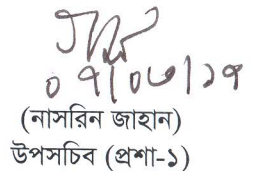 ০৭/০৩/১৭
(নাসরিন জাহান)
উপসচিব (প্রশা-১)